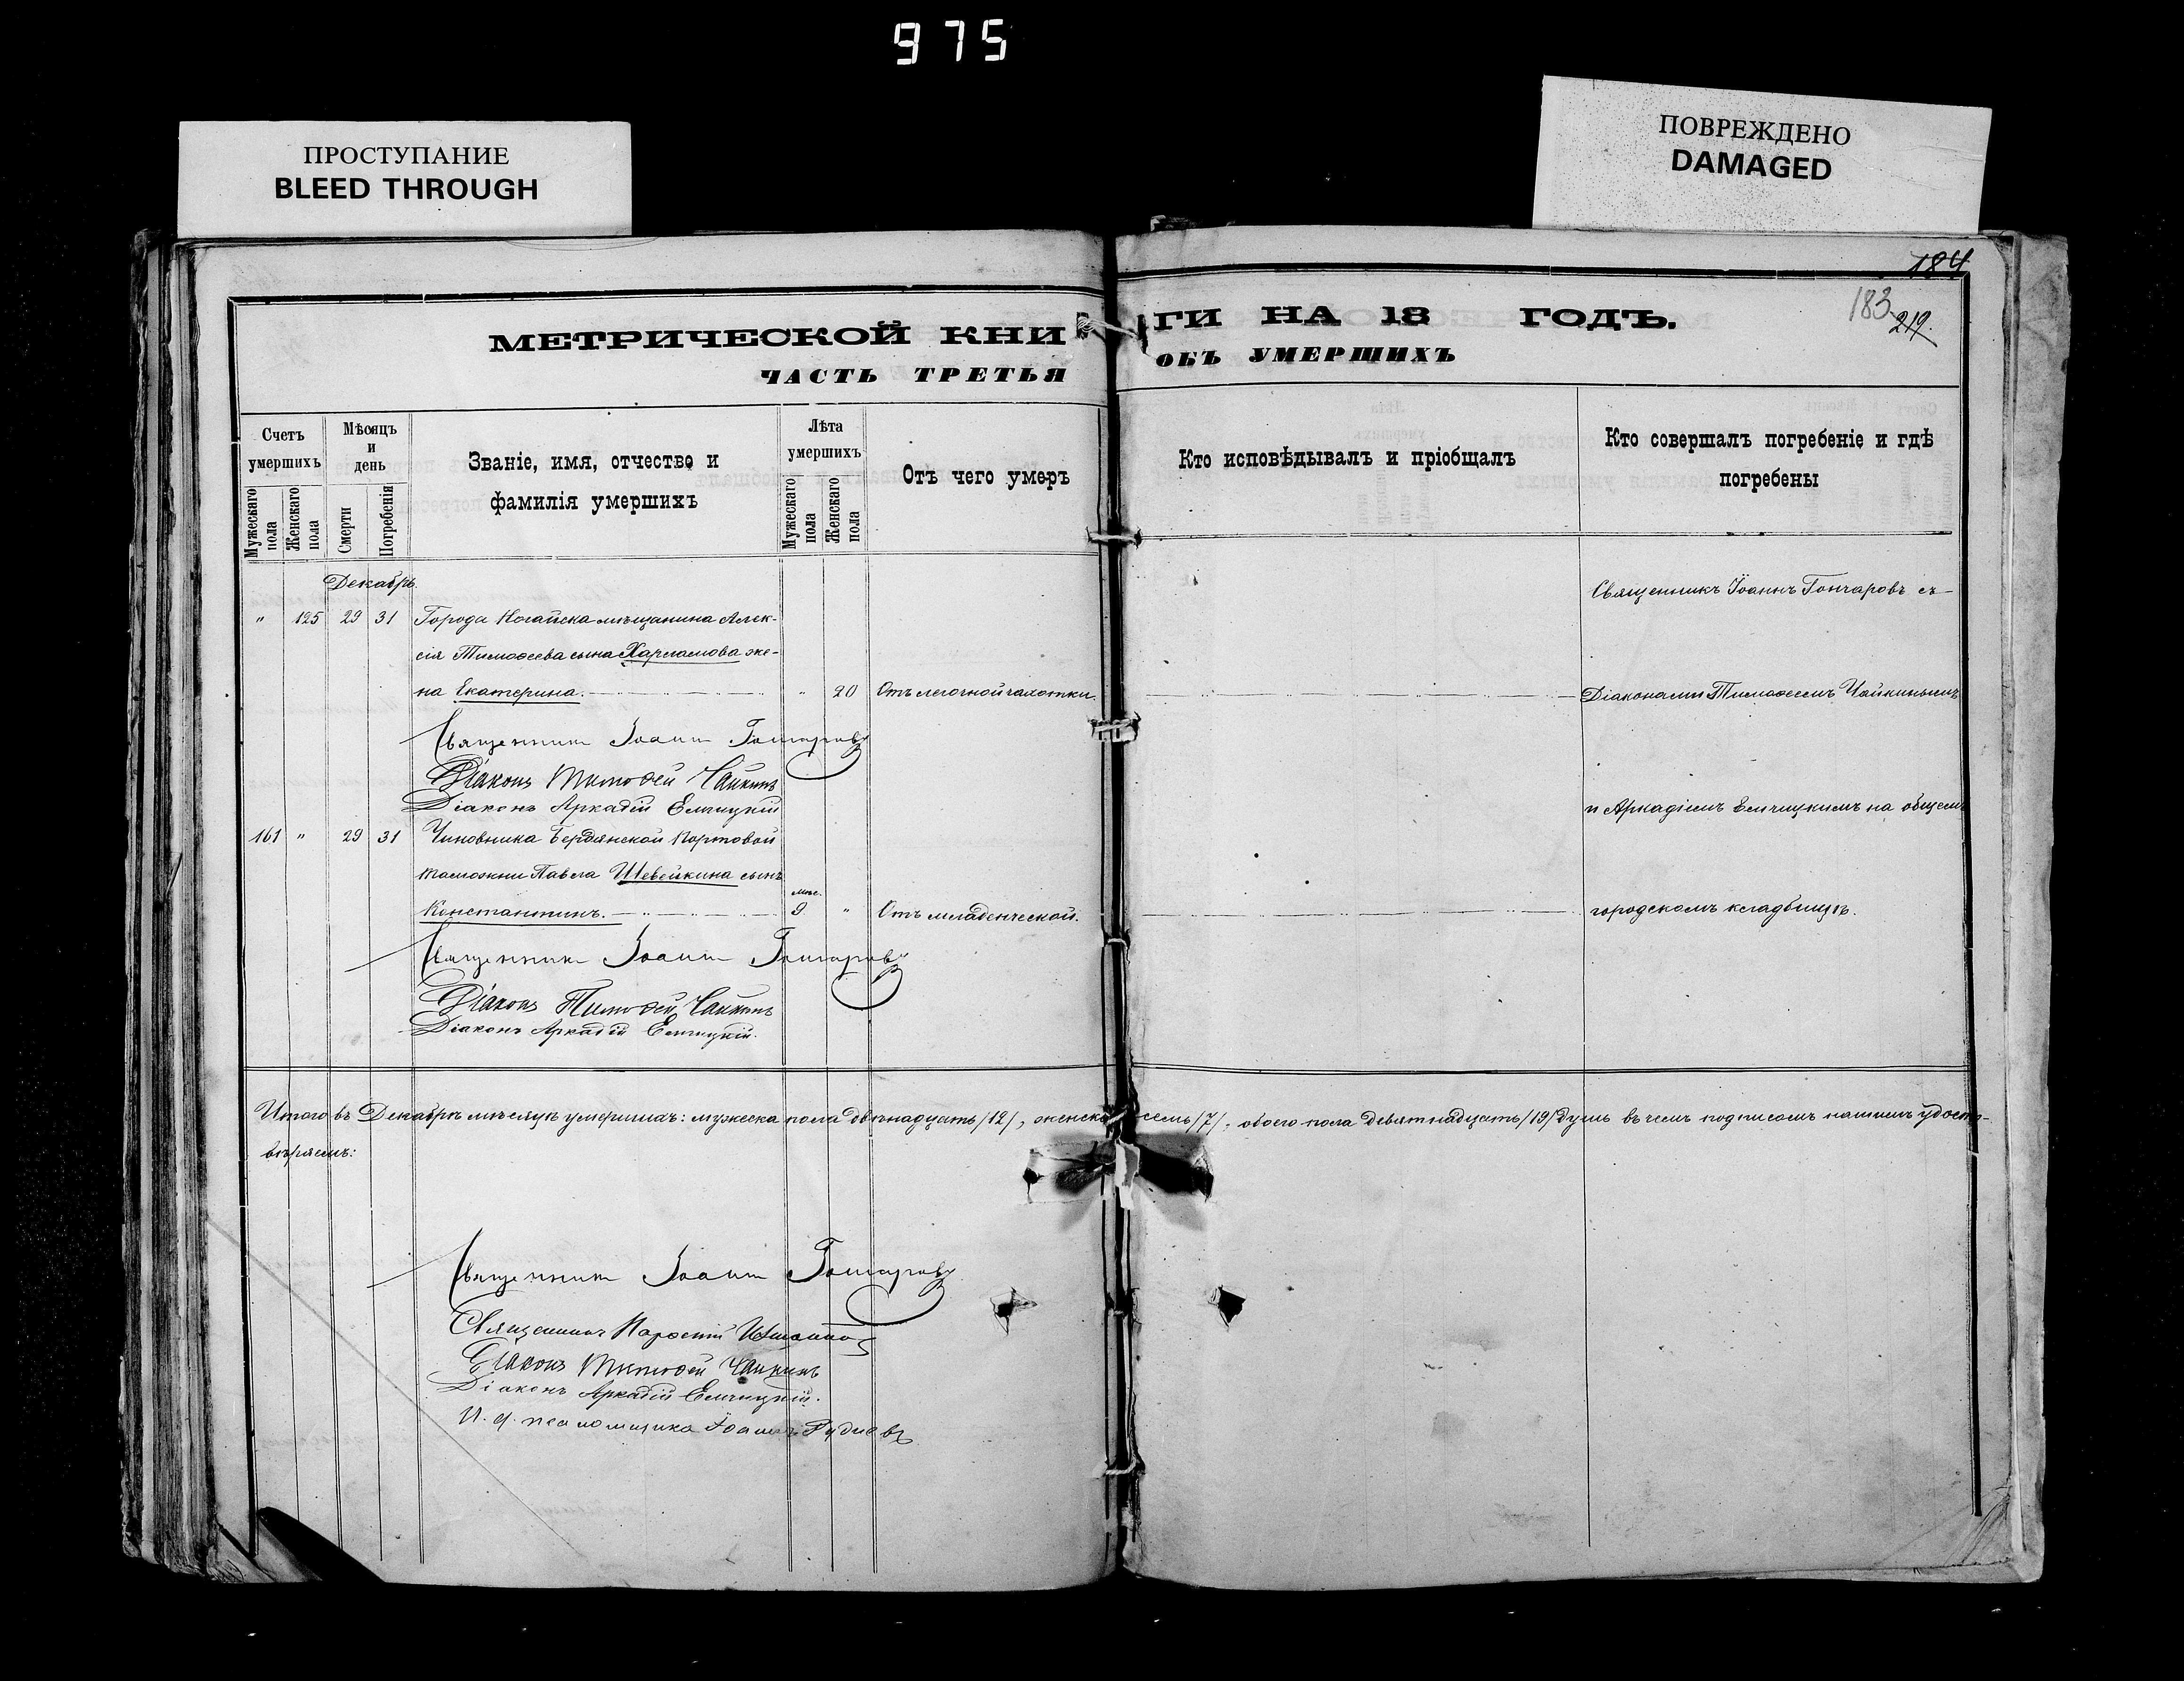 975
ПРОСТУПАНИЕ
BLEED THROUGH
ПОВРЕЖДЕНО
DAMAGED
184
183
219.
МЕТРИЧЕСКОЙ КНИ
ГИ НА 18 ГОДЪ.
ЧАСТЬ ТРЕТЬЯ
ОБЪ УМЕРШИХЪ
Счетъ умершихъ
Мужескаго пола
Женскаго пола
Мѣсяцъ и день
Смерти
Погребенія
Званіе, имя, отчество и
фамилія умершихъ
Лѣта умершихъ
Мужескаго пола
Женскаго пола
Отъ чего умеръ
Кто исповѣдывалъ и пріобщалъ
Кто совершалъ погребеніе и гдѣ
погребены
Декабрь.
" 125 29 31 Города Ногайска мѣщанина Алек-
сія Тимоѳеева сына Харламова же-
на Екатерина. " 20 Отъ легочной чахотки.
Священникъ Іоаннъ Гончаровъ съ
Діаконами Тимоѳеемъ Чайкинымъ
и Аркадіемъ Емчицкимъ на общемъ
городскомъ кладбищѣ.
Священникъ Іоаннъ Гончаровъ
Діаконъ Тимоѳей Чайкинъ
Діаконъ Аркадій Емчицкій
161 " 29 31 Чиновника Бердянской Портовой
таможни Павла Шевейкина сынъ
Константинъ. мѣс. 9 " Отъ младенческой.
Священникъ Іоаннъ Гончаровъ
Діаконъ Тимоѳей Чайкинъ
Діаконъ Аркадій Емчицкій.
Итого въ Декабрѣ мѣсяцѣ умершихъ: мужеска пола двѣнадцать /12/, женска семь /7/, обоего пола девятнадцать /19/ душъ въ чемъ подписомъ нашимъ удосто-
вѣряемъ:
Священникъ Іоаннъ Гончаровъ
Священникъ
Діаконъ Тимоѳей Чайкинъ
Діаконъ Аркадій Емчицкій.
И. д. псаломщика Іоаннъ